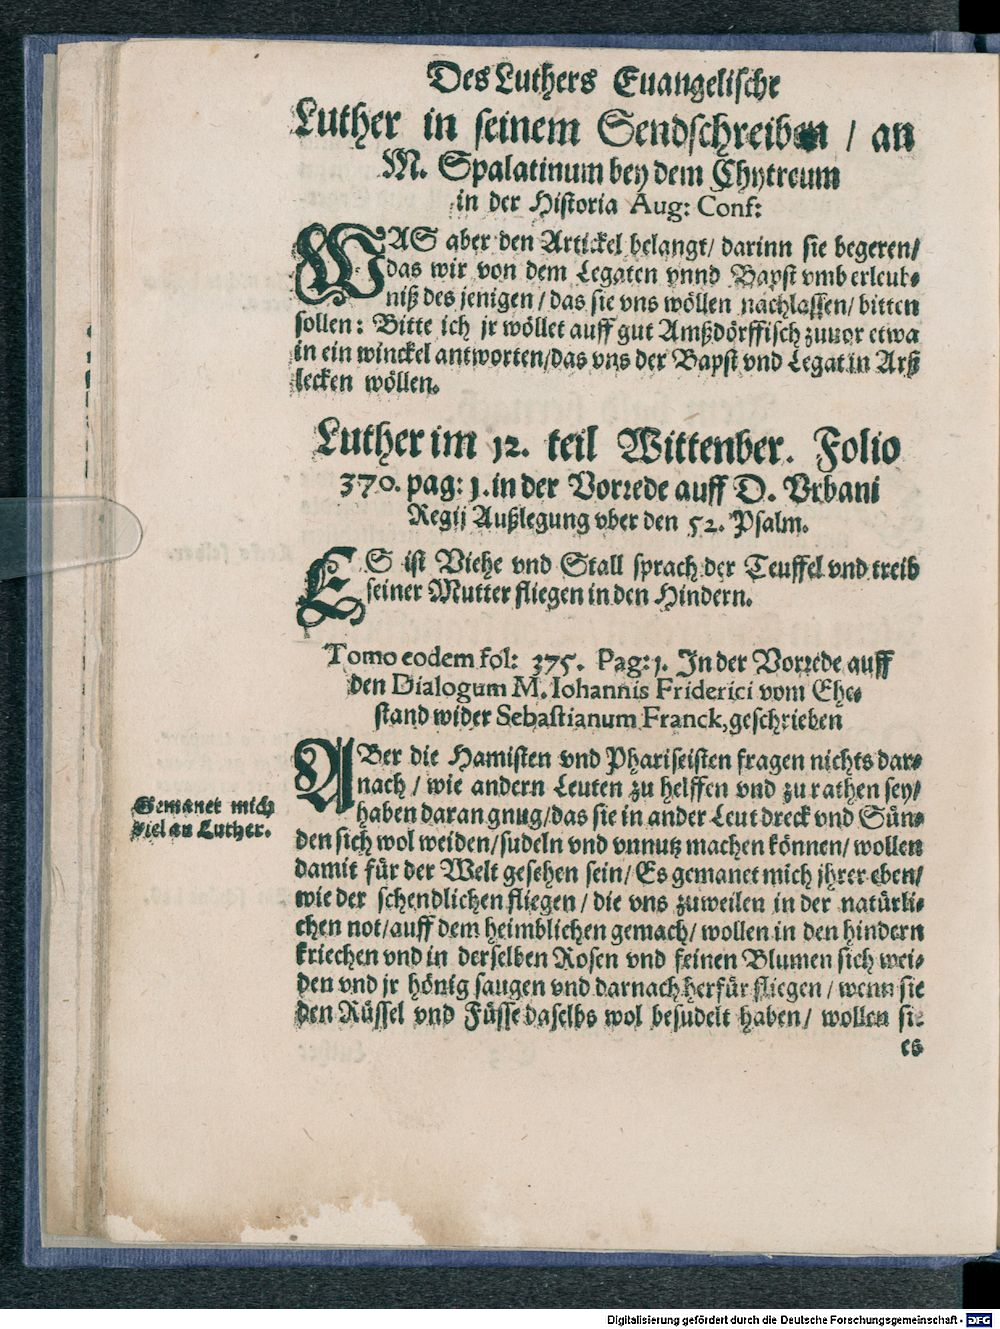 Des Luthers Euangelische
Luther in seinem Sendschreiben / an
M. Spalatinum bey dem Chytreum
in der Historia Aug: Conf:
WAS aber den Artickel belangt/ darinn sie begeren/
das wir von dem Legaten vnnd Bapst vmb erleub-
niß des jenigen / das sie vns wöllen nachlassen/ bitten
sollen: Bitte ich jr wöllet auff gut Amßdörffisch zuuor etwa
in ein winckel antworten/das vns der Bapst vnd Legat in Arß
lecken wöllen.
Luther im 12. teil Wittenber. Folio
370. pag: 1. in der Vorrede auff D. Vrbani
Regij Außlegung vber den 52. Psalm.
ES ist Viehe vnd Stall sprach der Teuffel vnd treib
seiner Mutter fliegen in den Hindern.
Tomo eodem fol: 375. Pag: 1. In der Vorrede auff
den Dialogum M. Iohannis Friderici vom Ehe-
stand wider Sebastianum Franck, geschrieben
ABer die Hamisten vnd Phariseisten fragen nichts dar-
nach / wie andern Leuten zu helffen vnd zu rathen sey/
haben daran gnug/das sie in ander Leut dreck vnd Sün-
Gemanet mich
viel an Luther.
den sich wol weiden/sudeln vnd vnnutz machen können/ wollen
damit für der Welt gesehen sein/ Es gemanet mich jhrer eben/
wie der schendlichen fliegen / die vns zuweilen in der natürli-
chen not/auff dem heimblichen gemach/ wollen in den hindern
kriechen vnd in derselben Rosen vnd feinen Blumen sich wei-
den vnd jr hönig saugen vnd darnach herfür fliegen / wenn sie
den Rüssel vnd Füsse daselbs wol besudelt haben/ wollen sie
es
Digitalisierung gefördert durch die Deutsche Forschungsgemeinschaft - DFG